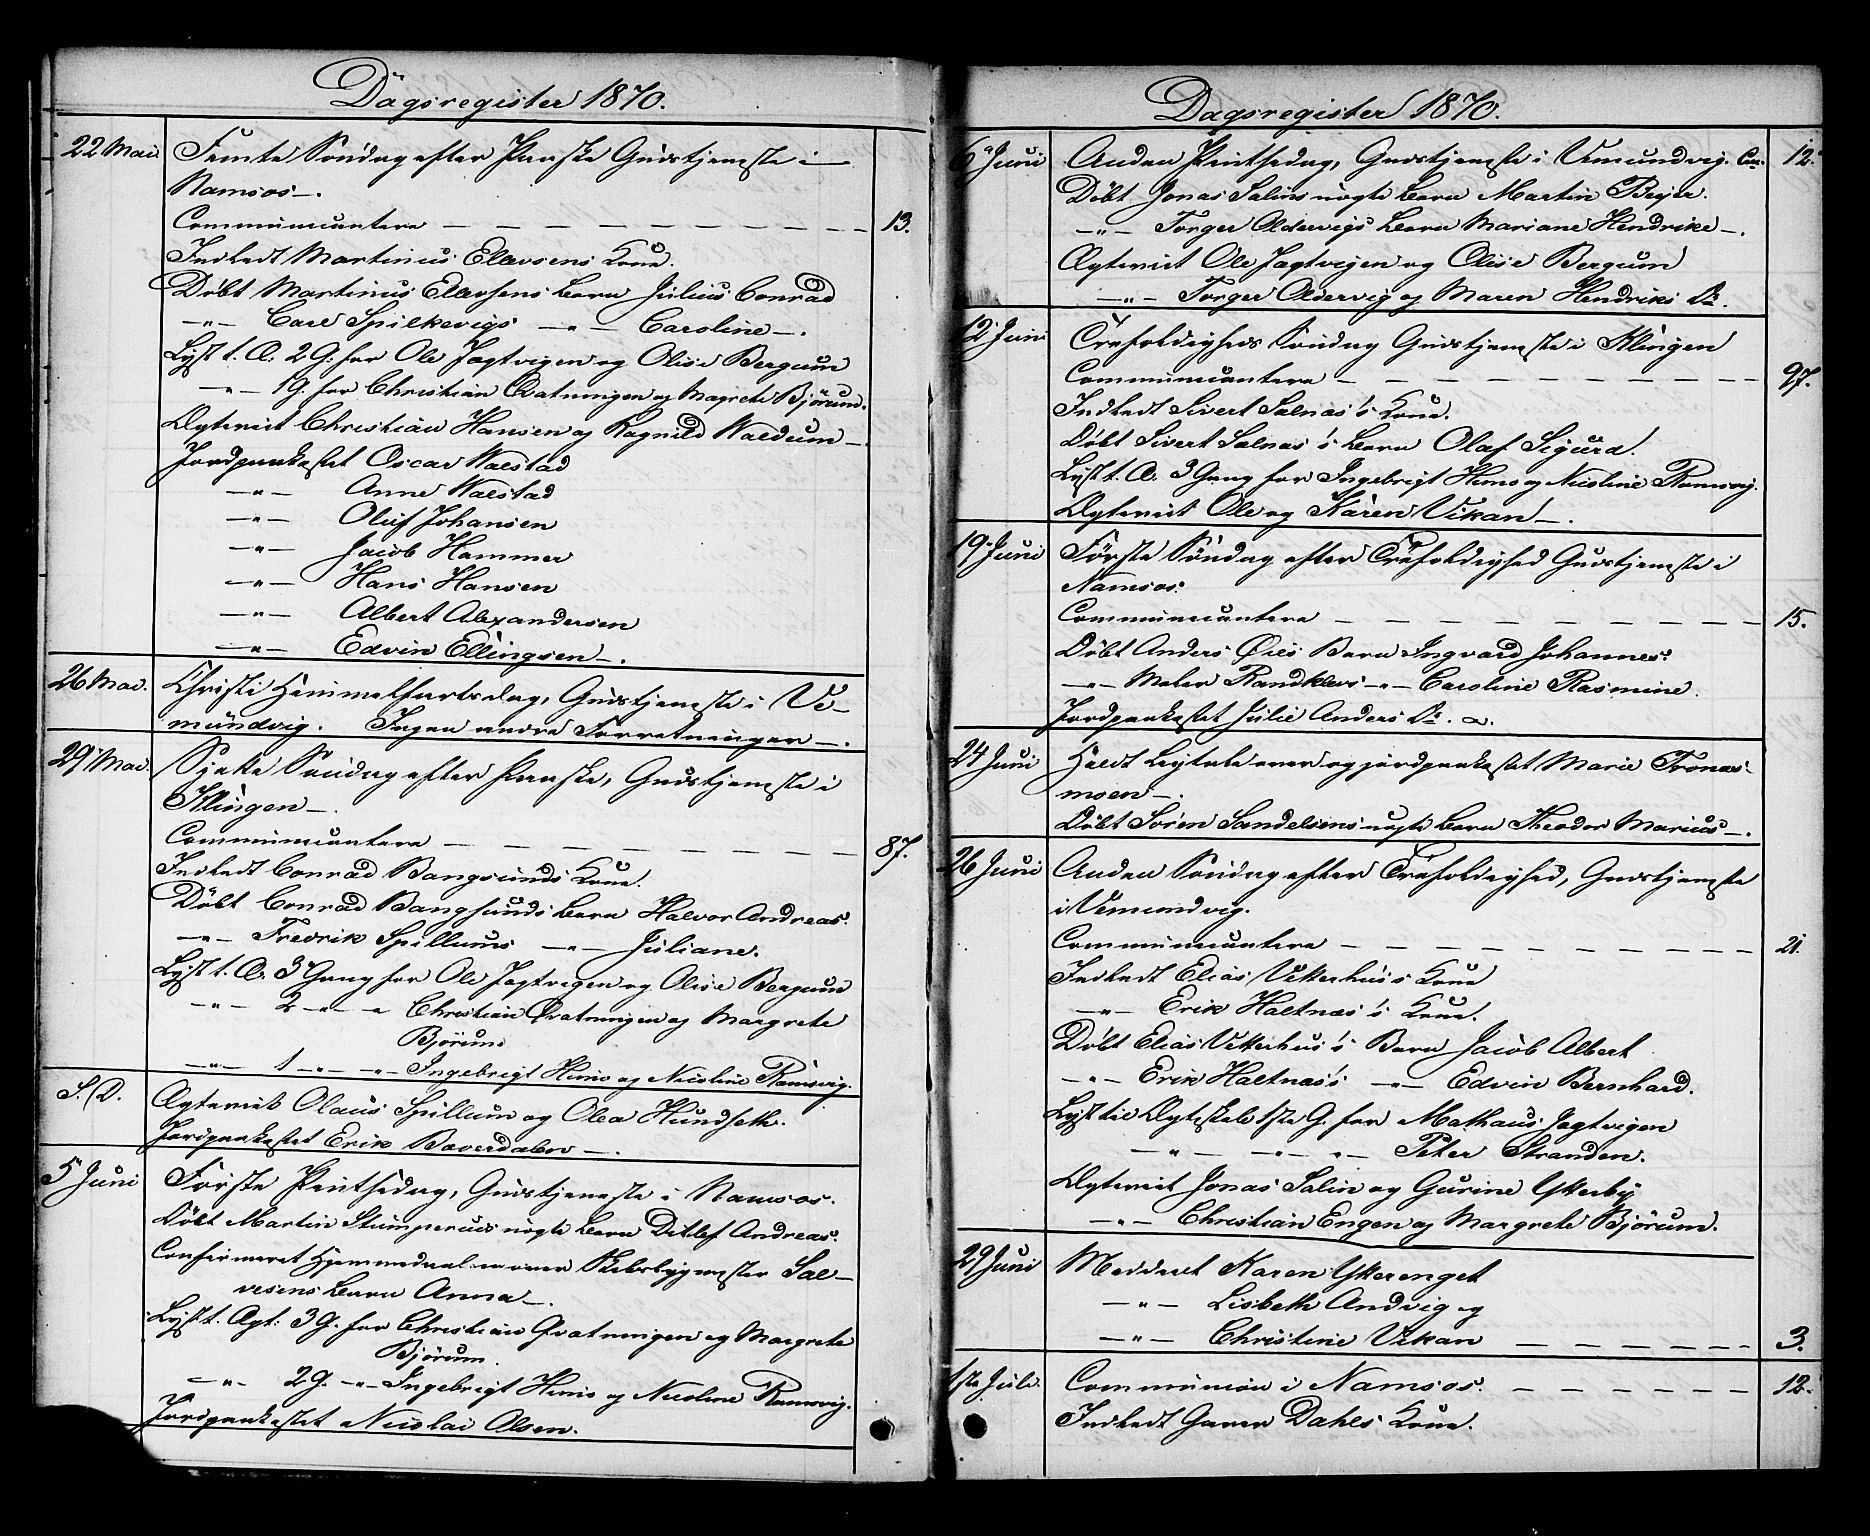 Dagsregister 1870.
22 Mai Femte Søndag efter Paaske Gudstjeneste i
Namsos.
Communicantere — — — — — — — 13.
Indledt Martinus Ellevsens Kone.
Døbt Martinus Ellevsens Barn Julius Conrad
—„— Carl Spilkevigs —„— Caroline.
Lyst t. Æ. 2 G. for Ole Jægtvigen og Olise Bergum
—„— 1 G. for Christian Qvatningen og Magrete Bjørum.
Ægteviet Christian Hansen og Ragnild Valdum
Jordpaakastet Oscar Walstad
—„— Anne Walstad
—„— Oluf Johansen
—„— Jacob Hammer
—„— Hans Hansen
—„— Albert Alexandersen
—„— Edvin Ellingsen.
26 Mai. Christi Himmelfartsdag, Gudstjeneste i Ve-
mundvig. Ingen andre Forretninger.
29 Mai. Sjette Søndag efter Paaske, Gudstjeneste i
Klingen.
Communicantere — — — — — — — 87.
Indledt Conrad Bangsunds Kone.
Døbt Conrad Bangsunds Barn Halvor Andreas.
—„— Fredrik Spillums —„— Juliane.
Lyst t. Æ. 3 Gang for Ole Jægtvigen og Olise Bergum
—„— 2 —„— „ Christian Qvatningen og Margrete
Bjørum
—„— 1 —„— „— Ingebrigt Himo og Nicoline Ramsvig.
S. D. Ægteviet Olaus Spillum og Olea Hundseth.
Jordpaakastet Erik Baverdalen.
5 Juni Første Pintsedag, Gudstjeneste i Namsos.
Døbt Martin Stumpercus uægte Barn Ditlef Andreas.
Confirmeret Skibsbygmester Sal-
vesens Barn Anna.
Lyst t. Ægt: 3 G. for Christian Qvatningen og Margrete
Bjørum.
—„— 2 G. —„— Ingebrigt Himo og Nicoline Ramsvig.
Jordpaakastet Nicolai Olsen.
Dagsregister 1870.
6 Juni Anden Pintsedag, Gudstjeneste i Vemundvig. Com. 12.
Døbt Jonas Salins uægte Barn Martin Bejer.
—„— Torger Oldervigs Barn Mariane Hendrike.
Ægteviet Ole Jægtvigen og Olise Bergum
—„— Torger Oldervig og Maren Hendriks Dr.
12 Juni Trefoldigheds Søndag Gudstjeneste i Klingen
Communicantere — — — — — — — 97.
Indledt Sivert Salnas's Kone.
Døbt Sivert Salnas's Barn Olaf Sigurd.
Lyst t. Æ. 3 Gang for Ingebrigt Himo og Nicoline Ramsvig.
Ægteviet Ole og Karen Vikan.
19 Juni Første Søndag efter Trefoldighed Gudstjeneste i
Namsos.
Communicantere — — — — — — — 15.
Døbt Anders Øies Barn Ingvard Johannes.
—„— Maler Randklevs —„— Caroline Rasmine.
Jordpaakastet Julie Anders Dr.
24 Juni Holdt Ligtale over og jordpaakastet Marie Tronas-
moen.
Døbt Søren Sandelsens uægte Barn Theodor Marius.
26 Juni Anden Søndag efter Trefoldighed, Gudstjeneste
i Vemundvig.
Communicantere — — — — — — — 21.
Indledt Elias Vikerhus's Kone
—„— Erik Haltnas's Kone.
Døbt Elias Vikerhus's Barn Jacob Albert
—„— Erik Haltnas's —„— Edvin Bernhard.
Lyst til Ægteskab 1ste G. for Mathaus Jægtvigen
—„— —„— „— Peter Stranden.
Ægteviet Jonas Salin og Gurine Ytterby
—„— Christian Engen og Margrete Bjørum.
29 Juni Meddeelt Karen Ytterenget
—„— Lisbeth Andvig og
—„— Christine Vikan — — — — — 3.
1ste Juli. Communion i Namsos. — — — — — 12.
Indledt Garver Dahls Kone.